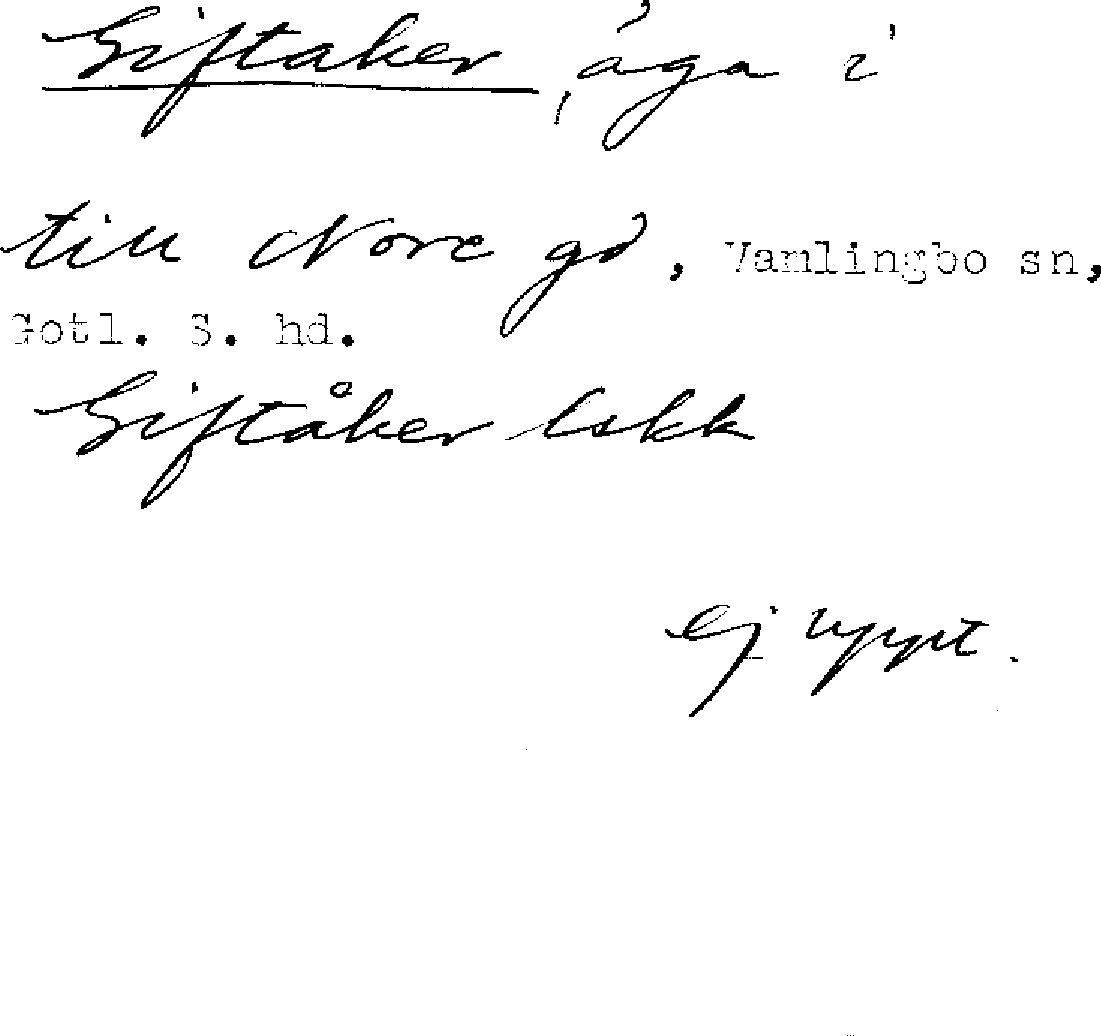 Giftaker, äga i
till Nore gd, Vamlingbo sn,
Gotl. S. hd.
Giftåker lskk
ej uppt.